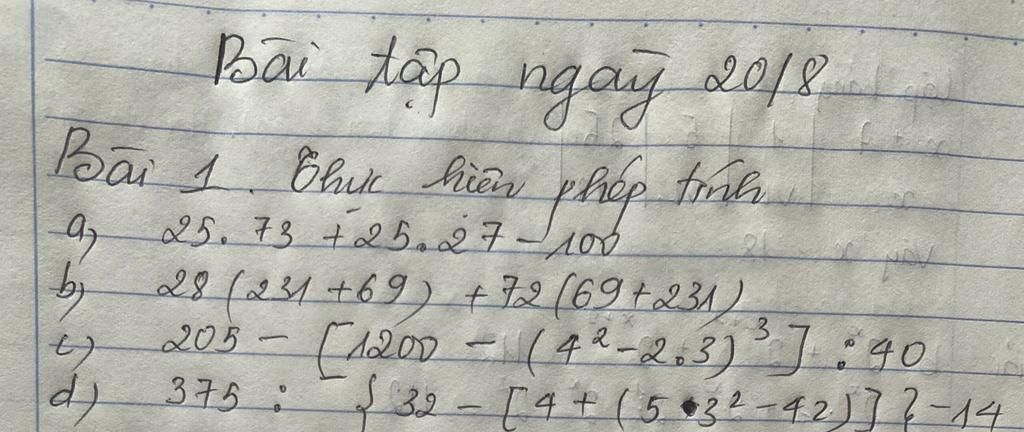 Bài tập ngày 2018
Bài 1. Thực hiện phép tính
a) 25.73 + 25.27 - 100
b) 28(231+69) + 72(69+231)
c) 205 - [1200 - (4² - 2.3)³] : 40
d) 375 : { 32 - [4 + (5.3² - 42)] } - 14